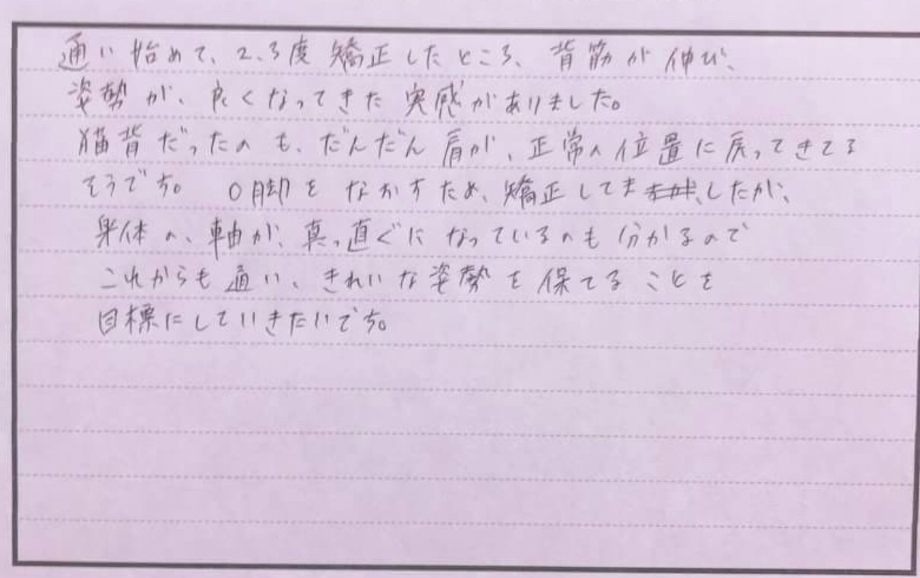 通い始めて、2、3度矯正したところ、背筋が伸び、
姿勢が、良くなってきた実感がありました。
猫背だったのも、だんだん肩が、正常の位置に戻ってきてる
そうです。O脚をなおすため、矯正してましたが、
身体の、軸が、真っ直ぐになっているのも分かるので
これからも通い、きれいな姿勢を保てることを
目標にしていきたいです。